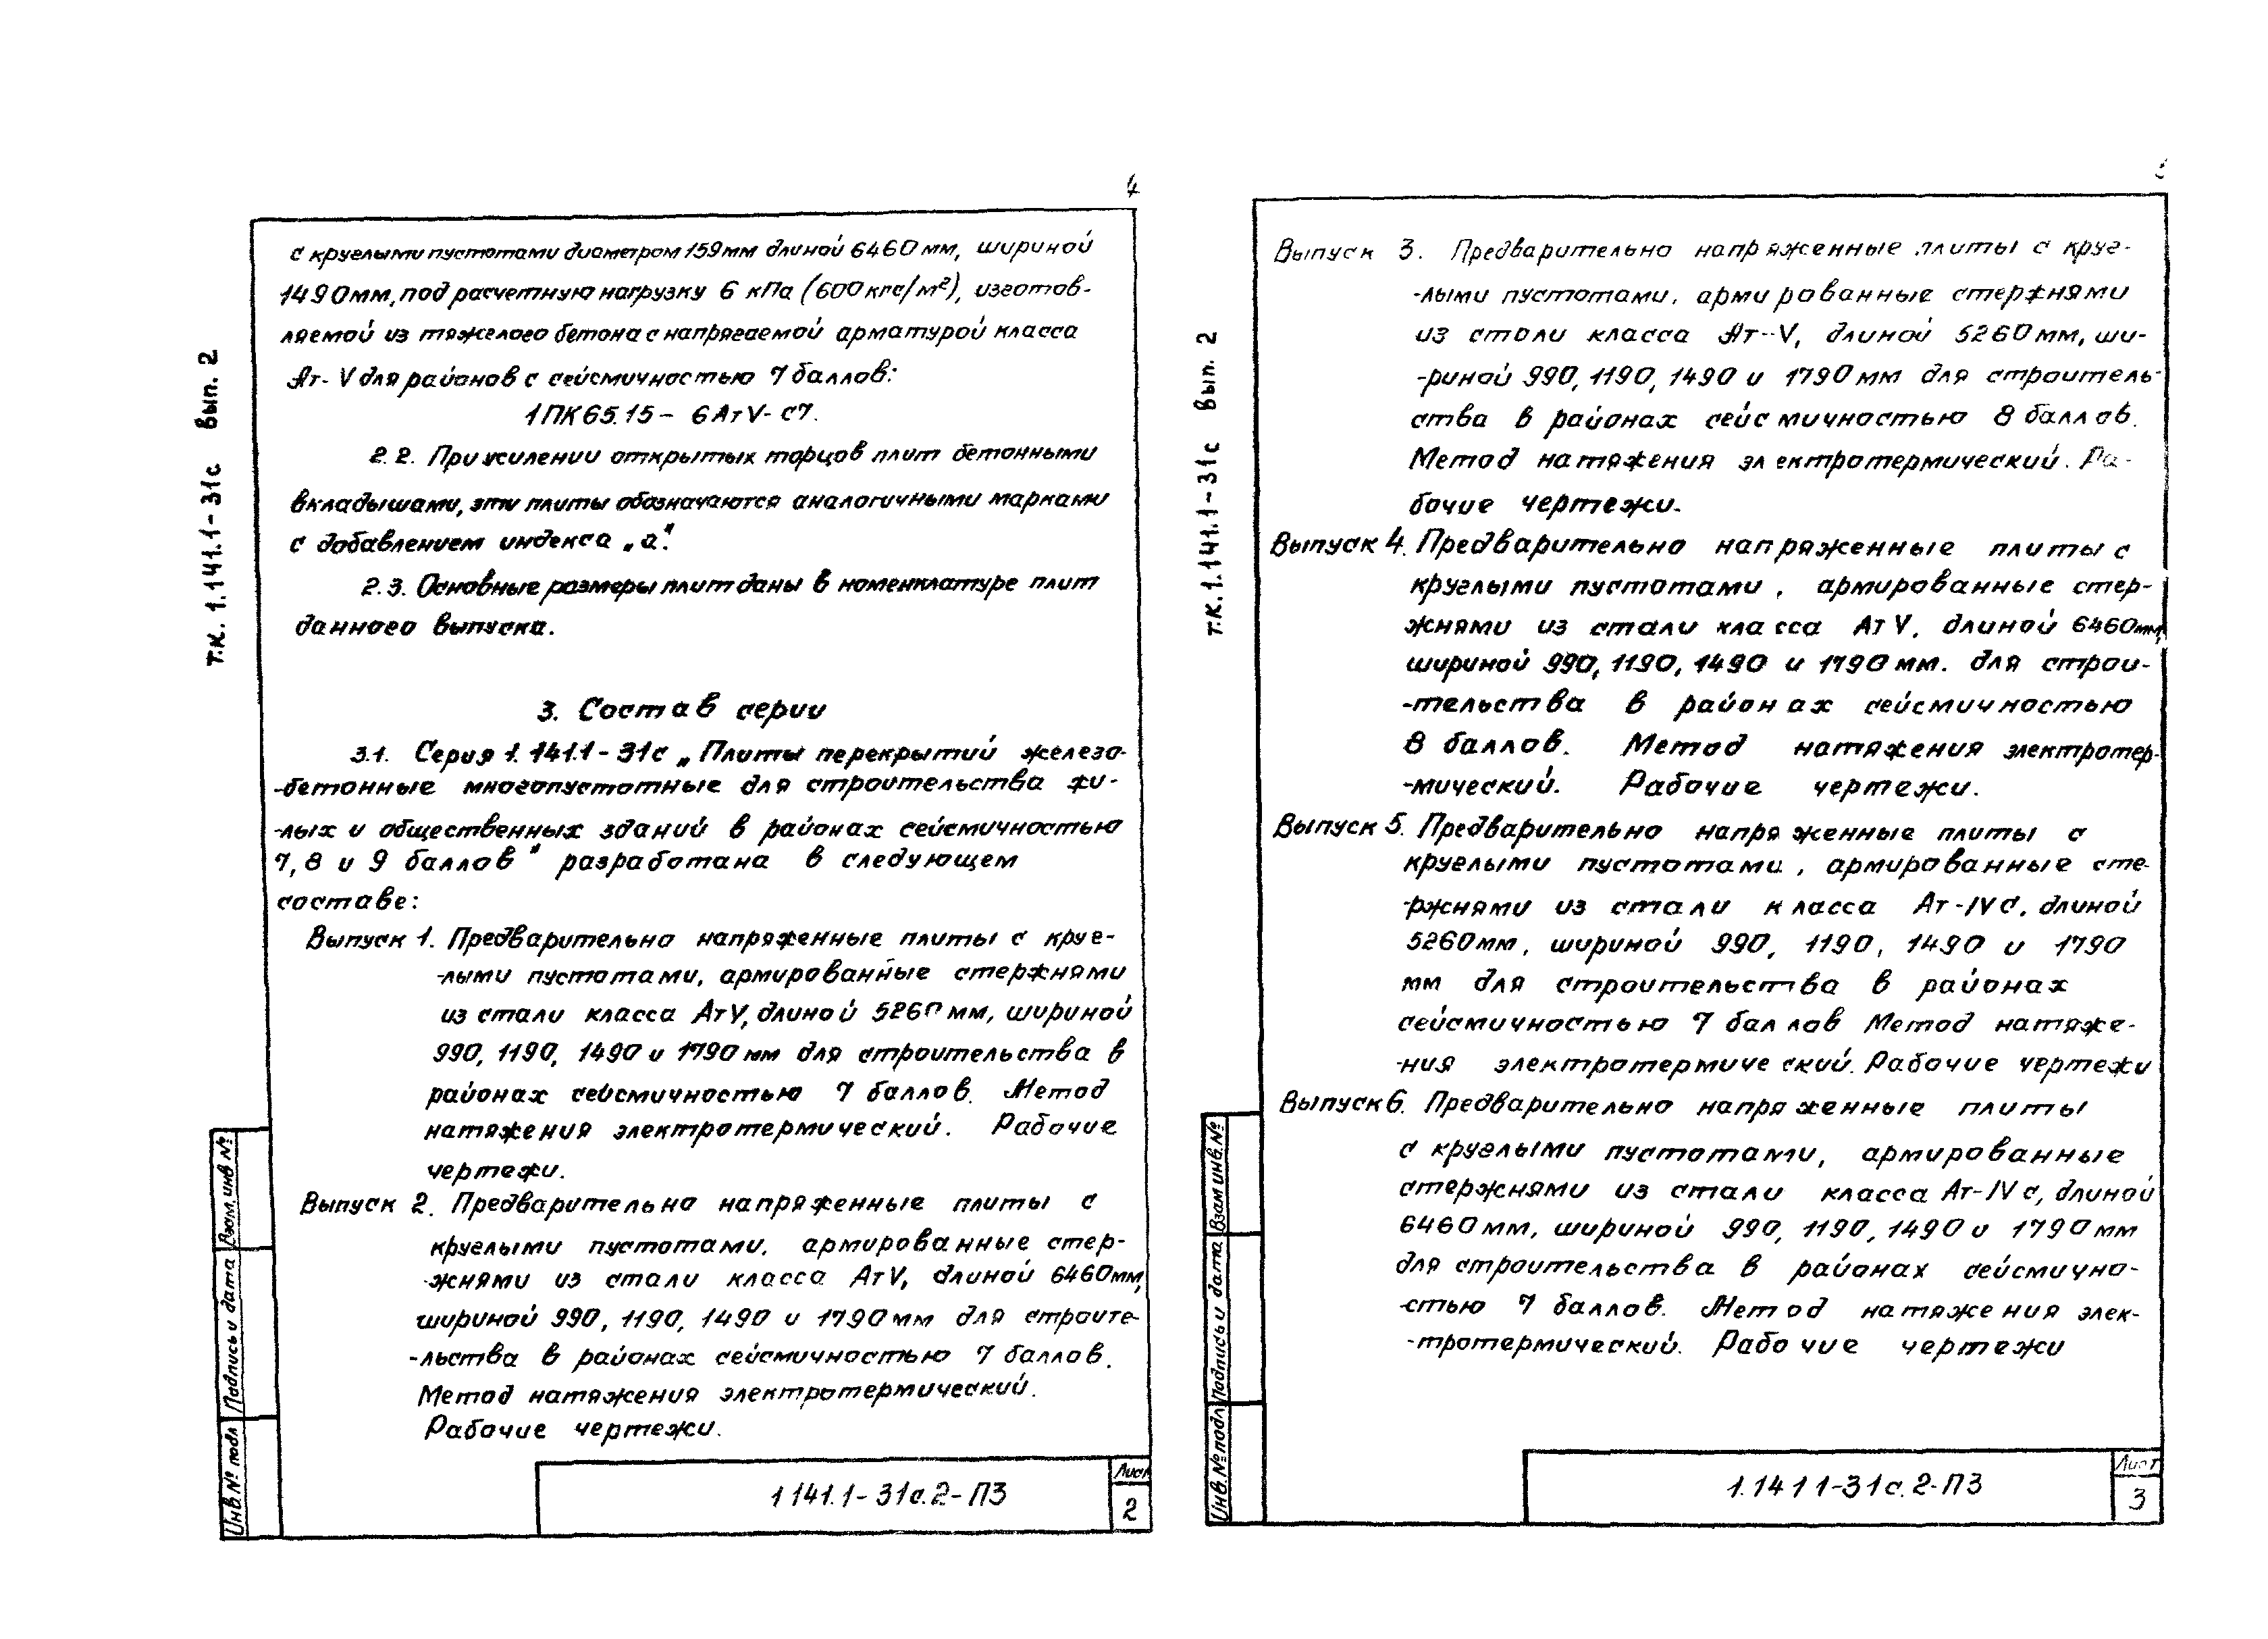 4
с круглыми пустотами диаметром 159мм длиной 6460 мм, шириной
1490мм, под расчетную нагрузку 6 кПа (600 кгс/м²), изготов-
ляемой из тяжелого бетона с напрягаемой арматурой класса
Ат-V для районов с сейсмичностью 7 баллов:
1ПК65.15- 6АтV-С7.
2.2. При усилении открытых торцов плит бетонными
вкладышами, эти плиты обозначаются аналогичными марками
с добавлением индекса „а".
2.3. Основные размеры плит даны в номенклатуре плит
данного выпуска.
3. Состав серии
3.1. Серия 1.141.1-31с „Плиты перекрытий железо-
-бетонные многопустотные для строительства жи-
-лых и общественных зданий в районах сейсмичностью
7, 8 и 9 баллов" разработана в следующем
составе:
Выпуск 1. Предварительно напряженные плиты с круг-
-лыми пустотами, армированные стержнями
из стали класса АтV, длиной 5260 мм, шириной
990, 1190, 1490 и 1790 мм для строительства в
районах сейсмичностью 7 баллов. Метод
натяжения электротермический. Рабочие
чертежи.
Выпуск 2. Предварительно напряженные плиты с
круглыми пустотами, армированные стер-
-жнями из стали класса АтV, длиной 6460мм,
шириной 990, 1190, 1490 и 1790мм для строите-
-льства в районах сейсмичностью 7 баллов.
Метод натяжения электротермический.
Рабочие чертежи.
1 141.1-31с.2-ПЗ
Лист
2
т.к. 1.141.1-31с вып. 2
Взам. инв №
Подпись и дата
Инв № подл
Выпуск 3. Предварительно напряженные плиты с круг-
-лыми пустотами, армированные стержнями
из стали класса Ат-V, длиной 5260мм, ши-
-риной 990, 1190, 1490 и 1790мм для строитель-
ства в районах сейсмичностью 8 баллов.
Метод натяжения электротермический. Ра-
бочие чертежи.
Выпуск 4. Предварительно напряженные плиты с
круглыми пустотами, армированные стер-
жнями из стали класса АтV, длиной 6460мм,
шириной 990, 1190, 1490 и 1790мм. для строи-
-тельства в районах сейсмичностью
8 баллов. Метод натяжения электротер-
-мический. Рабочие чертежи.
Выпуск 5. Предварительно напряженные плиты с
круглыми пустотами, армированные сте-
-ржнями из стали класса Ат-IVС, длиной
5260мм, шириной 990, 1190, 1490 и 1790
мм для строительства в районах
сейсмичностью 7 баллов Метод натяже-
-ния электротермический. Рабочие чертежи
Выпуск 6. Предварительно напряженные плиты
с круглыми пустотами, армированные
стержнями из стали класса Ат-IVс, длиной
6460мм, шириной 990, 1190, 1490 и 1790мм
для строительства в районах сейсмично-
-стью 7 баллов. Метод натяжения элек-
-тротермический. Рабочие чертежи
1.141 1-31с.2-ПЗ
Лист
3
т.к. 1.141.1-31с вып. 2
Взам инв. №
Подпись и дата
Инв. № подл